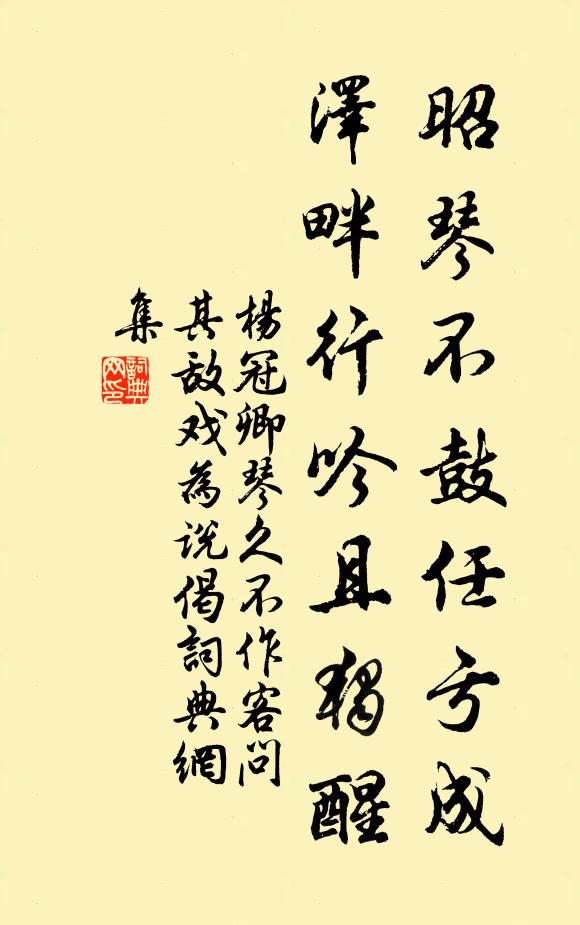 昭琴不鼓任亏成
澤畔行吟且獨醒
楊冠卿琴久不作客問
其故戏為说偈詞典網
集
詞典
网印